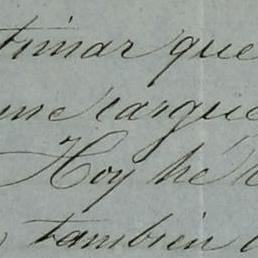 timar que
me cargue
Hoy hé
también